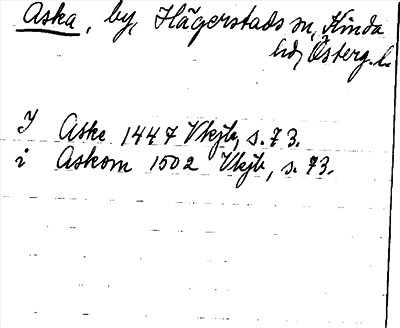 Aska, by, Hägerstads sn, Kinda
hd, Österg. l.
I Aske 1447 Vkjb, s. 73.
i Askom 1502 Vkjb, s. 73.